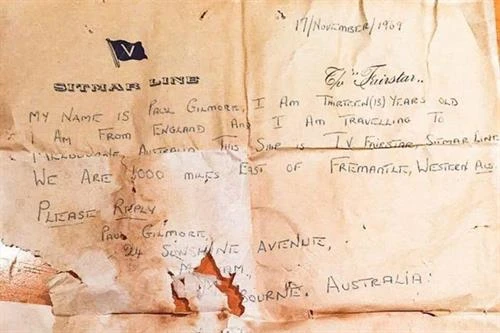 17/NOVEMBER/1969
V
SITMAR LINE
T/V "Fairstar"
MY NAME IS PAUL GILMORE, I AM THIRTEEN (13) YEARS OLD
I AM FROM ENGLAND AND I AM TRAVELLING TO
MELBOURNE, AUSTRALIA. THIS SHIP IS TV FAIRSTAR, SITMAR LINE
WE ARE 1000 MILES EAST OF FREMANTLE, WESTERN AUS
PLEASE REPLY
PAUL GILMORE,
24 SUNSHINE AVENUE,
BOURNE. AUSTRALIA.